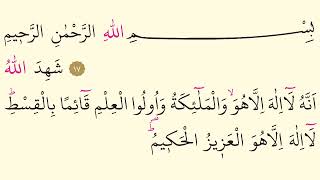 بِسْمِ اللهِ الرَّحْمٰنِ الرَّحٖيمِ
﴿١٧﴾ شَهِدَ اللهُ
اَنَّهُ لَٓا اِلٰهَ اِلَّا هُوَۙ وَالْمَلٰٓئِكَةُ وَاُولُوا الْعِلْمِ قَٓائِمًا بِالْقِسْطِؕ
لَٓا اِلٰهَ اِلَّا هُوَ الْعَزٖيزُ الْحَكٖيمُؕ